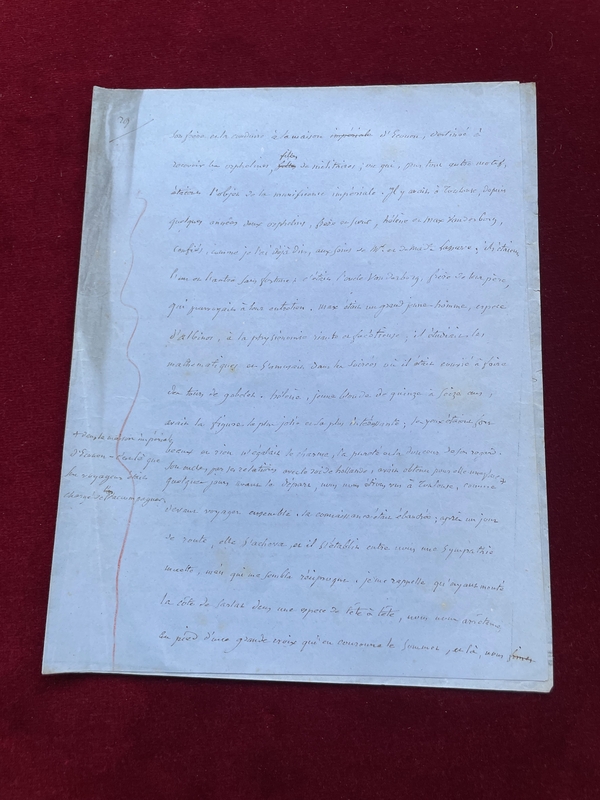 son frère et la conduire à la maison impériale d'Ecouen, destinée à
recevoir les orphelines, filles de militaires; ce qui, sous tout autre motif,
était l'objet de la munificence impériale. Il y avait à Toulouse, depuis
quelques années deux orphelins, frère et sœur, hélène et Max Vanderbourg,
confiés, comme je l'ai déjà dit, aux soins de Mr. et de Made
l'un et l'autre sans fortune; c'était Vanderbourg, frère de leur père,
qui pourvoyait à leur entretien. max était un grand jeune homme, espèce
d'albinos, à la physionomie; il étudiait les
mathématiques et s'amusait dans les soirées où il était convié à faire
des tours de gobelets. hélène, jeune blonde de quinze à seize ans,
avait la figure la plus jolie et la plus intéressante; ses yeux étaient fort
beaux et rien n'égalait le charme, la pureté et la douceur de son regard.
Son oncle, par ses relations avec le roi de hollande, avait obtenu pour elle une place +
quelques jours avant le départ, nous nous étions vus à Toulouse, comme
devant voyager ensemble. la connaissance était ébauchée; après un jour
de route, elle s'acheva, et il s'établit entre nous une sympathie
muette, mais qui me sembla réciproque. je me rappelle qu'ayant monté
la côte de dans une espèce de tête à tête, nous nous arrêtâmes
au pied d'une grande croix qui en couronnait le sommet, et là, nous
+ dans la maison impériale
d'Ecouen
le voyageur était
chargé de l'accompagner.